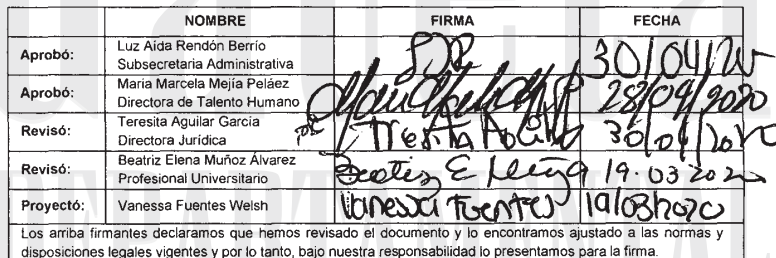 NOMBRE FIRMA FECHA
Aprobó: Luz Aida Rendón Berrío
Subsecretaria Administrativa 30/04/20
Aprobó: Maria Marcela Mejía Peláez
Directora de Talento Humano 28/04/2020
Revisó: Teresita Aguilar Garcia
Directora Jurídica Teresita 30/04/2020
Revisó: Beatriz Elena Muñoz Álvarez
Profesional Universitario Beatriz E 19.03 2020
Proyectó: Vanessa Fuentes Welsh Vanessa Fuentes 19/03/2020
Los arriba firmantes declaramos que hemos revisado el documento y lo encontramos ajustado a las normas y
disposiciones legales vigentes y por lo tanto, bajo nuestra responsabilidad lo presentamos para la firma.